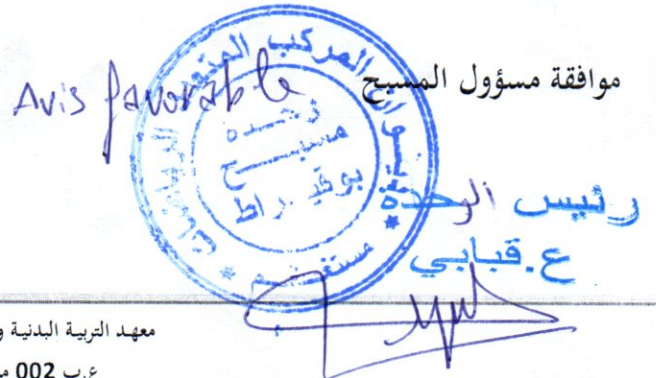 موافقة مسؤول المسبح
Avis favorable
المركب المتعدد الرياضات
وحدة
مسبح
بوقيراط
مستغانم
رئيس الوحدة
ع.قبايي
معهد التربية البدنية و
ع.ب 002